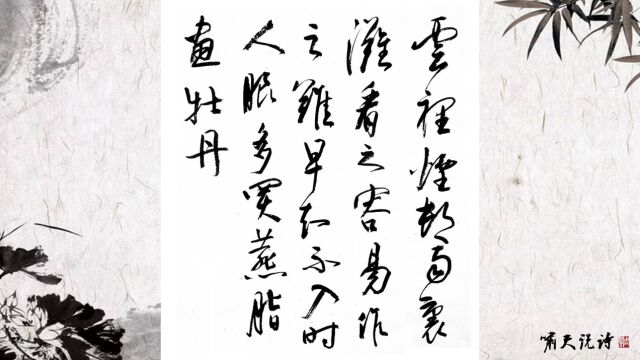 雲裡煙邨雨裏
灘看之容易作
之難早知不入时
人眼多買燕脂
畫牡丹
嘯天说诗